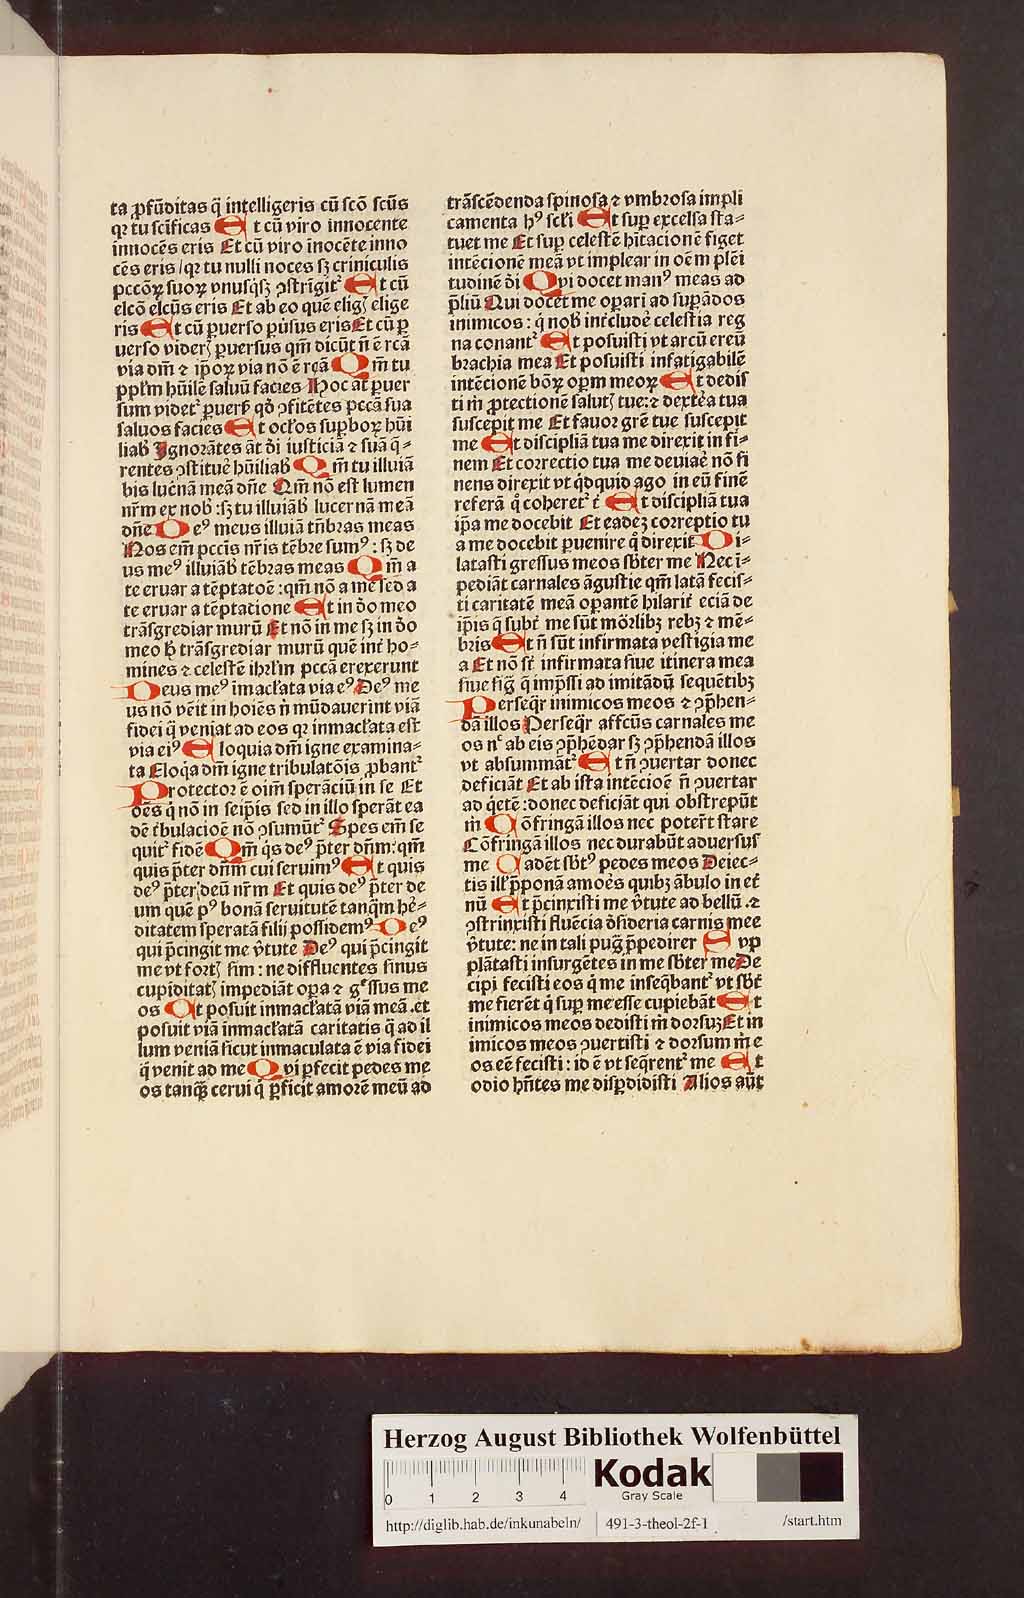 ta ꝓfũditas q̃ intelligeris cũ scõ scũs
qꝛ tu scificas Et cũ viro innocente
innocẽs eris Et cũ viro ĩnocẽte inno
cẽs eris / qꝛ tu nulli noces sꝫ criniculis
pccõꝝ suoꝝ vnusq̃sꝫ ꝯstrĩgitᷣ Et cũ
elcõ elcũs eris Et ab eo quẽ eligꝭ elige
ris Et cũ ꝑuerso ꝑũsus eris Et cũ ꝑ
uerso viderꝭ ꝑuersus qm̃ dicũt ñ ẽ rc̃a
via dñi ⁊ ip̃oꝝ via nõ ẽ rc̃a Qm̃ tu
ppl̃m hũilẽ saluũ facies Hoc at̃ ꝑuer
sum videtᷣ ꝑuerẜ qđ ꝯfitẽtes pccã sua
saluos facies Et ocl̃os suꝑboꝝ hũi
liab̃ Ignorãtes ãt đi iusticiã ⁊ suã q̃⸗
rentes ꝯstituẽ hũiliab̃ Qm̃ tu illuiã
bis lucẽnã meã dñe Qm̃ nõ est lumen
nr̃m ex nob̃ : sꝫ tu illuiãb̃ lucernã meã
dñe Deꝰ meus illuiã tñbras meas
Nos em̃ pccis nr̃is tẽbre sumꝰ : sꝫ de
us meꝰ illuiãb̃ tẽbras meas Qm̃ a
te eruar a tẽptatõe : qm̃ nõ a me sed a
te eruar a tẽptacione Et in đo meo
trãsgrediar murũ Et nõ in me sꝫ in đo
meo h̃ trãsgrediar murũ quẽ int̃ ho⸗
mines ⁊ celestẽ ihrl̃m pccã erexerunt
Deus meꝰ ĩmacl̃ata via eꝰ Deꝰ me
us nõ vẽit in hoiẽs ñ mũdauerint viã
fidei q̃ veniat ad eos qꝛ inmacl̃ata est
via eiꝰ Eloquia dñi igne examina⸗
ta Eloq̃a dñi igne tribulatõis ꝓbantᷣ
Protector ẽ oim̃ sperãciũ in se Et
oẽs q̃ nõ in seip̃is sed in illo sperãt ea
dẽ t̃bulacioẽ nõ ꝯsumũtᷣ Spes em̃ se
quitᷣ fidẽ Qm̃ q̃s deꝰ p̃ter dñm : qm̃
quis p̃ter dñm cui seruimꝰ Et quis
deꝰ p̃ter deũ nr̃m Et quis deꝰ p̃ter de
um quẽ pꝰ bonã seruitutẽ tanq̃m hẽ⸗
ditatem speratã filij possidemꝰ Deꝰ
qui p̃cingit me ṽtute Deꝰ qui p̃cingit
me vt fortꝭ sim : ne diffluentes sinus
cupiditatꝭ impediãt oꝑa ⁊ gᷣssus me
os Et posuit inmacl̃atã viã meã .et
posuit viã inmacl̃atã caritatis q̃ ad il
lum veniã sicut inmaculata ẽ via fidei
q̃ venit ad me Qui ꝑfecit pedes me
os tanq̃ꝫ cerui q̃ ꝑficit amorẽ meũ ad
trãscẽdenda spinosa ⁊ vmbrosa impli
camenta hꝰ scl̃i Et suꝑ excelsa sta⸗
tuet me Et suꝑ celestẽ h̃itacionẽ figet
intẽcionẽ meã vt implear in oẽm pl̃ei
tudinẽ đi Qui docet manꝰ meas ad
p̃liũ Qui docet me oꝑari ad suꝑãdos
inimicos : q̃ nob̃ int̃cludẽ celestia reg
na conantᷣ Et posuisti vt arcũ ereũ
brachia mea Et posuisti infatigabilẽ
intẽcionẽ bõꝝ oꝑm meoꝝ Et dedis
ti m̃ ꝓtectionẽ salutꝭ tue : ⁊ dextẽa tua
suscepit me Et fauor grẽ tue suscepit
me Et discipliã tua me direxit in fi⸗
nem Et correctio tua me deuiaẽ nõ si
nens direxit vt qđquid ago in eũ finẽ
referã q̃ coheretᷣ t̃ Et discipliã tua
ip̃a me docebit Et eadeꝫ correptio tu
a me docebit ꝑuenire q̃ direxit Di⸗
latasti gressus meos sb̃ter me Nec i⸗
pediãt carnales ãgustie qm̃ latã fecis⸗
ti caritatẽ meã oꝑantẽ hilarit̃ eciã de
ip̃is q̃ subt̃ me sũt mõrlibꝫ rebꝫ ⁊ mẽ⸗
bris Et ñ sũt infirmata vestigia me
a Et nõ st̃ infirmata siue itinera mea
siue fig̃ q̃ imp̃ssi ad imitãdũ sequẽtibꝫ
Perseq̃r inimicos meos ⁊ ꝯp̃hen⸗
dã illos Perseq̃r affcũs carnales me
os nᷤ ab eis ꝯp̃hẽdar sꝫ ꝯp̃hendã illos
vt absummãtᷣ Et ñ ꝯuertar donec
deficiãt Et ab ista intẽcioẽ ñ ꝯuertar
ad q̃etẽ : donec deficiãt qui obstrepũt
m̃ Cõfringã illos nec potert̃ stare
Cõfringã illos nec durabũt aduersus
me Cadẽt sb̃tꝰ pedes meos Deiec⸗
tis ill̃ p̃ponã amoẽs quibꝫ ãbulo in et̃
nũ Et p̃cinxisti me ṽtute ad bellũ .⁊
ꝯstrinxisti fluẽcia đsideria carnis mee
ṽtute : ne in tali pug̃ p̃pedirer Sup
plãtasti insurgẽtes in me sb̃ter me De
cipi fecisti eos q̃ me inseq̃bantᷣ vt sb̃t̃
me fierẽt q̃ suꝑ me esse cupiebãt Et
inimicos meos dedisti m̃ dorsuꝫ Et in
imicos meos ꝯuertisti ⁊ dorsum m̃ e
os eẽ fecisti : id ẽ vt seq̃rentᷣ me Et
odio hñtes me disꝑdidisti Alios aũt
Herzog August Bibliothek Wolfenbüttel
0 1 2 3 4
Kodak
Gray Scale
http://diglib.hab.de/inkunabeln/ 491-3-theol-2f-1 /start.htm